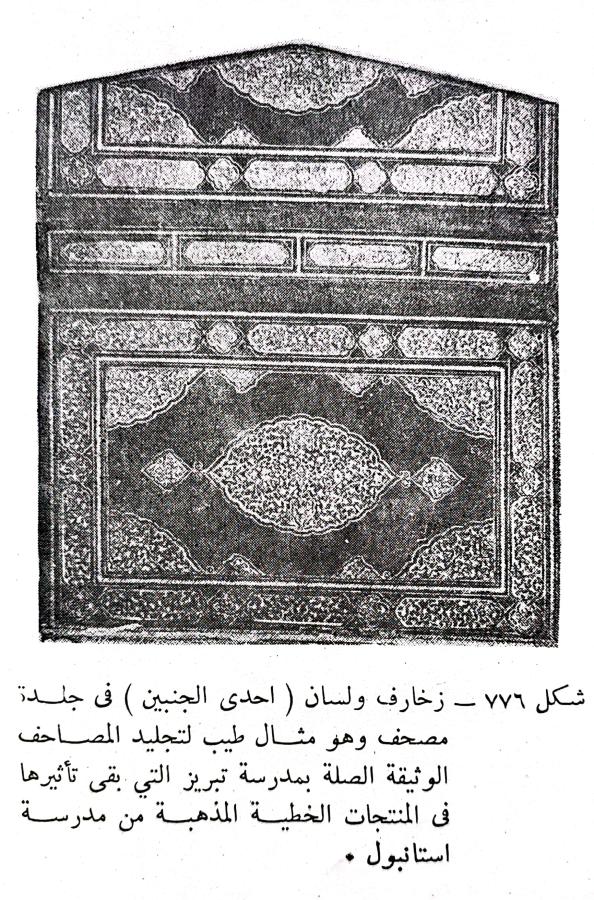 شكل ٧٧٦ ــ زخارف ولسان ( احدى الجنبين ) فى جلـــدة
مصحف وهو مثــال طيب لتجليد المصــاحف
الوثيقة الصلة بمدرسة تبريز التي بقى تأثيرها
فى المنتجات الخطيــة المذهبــة من مدرســة
استانبول •